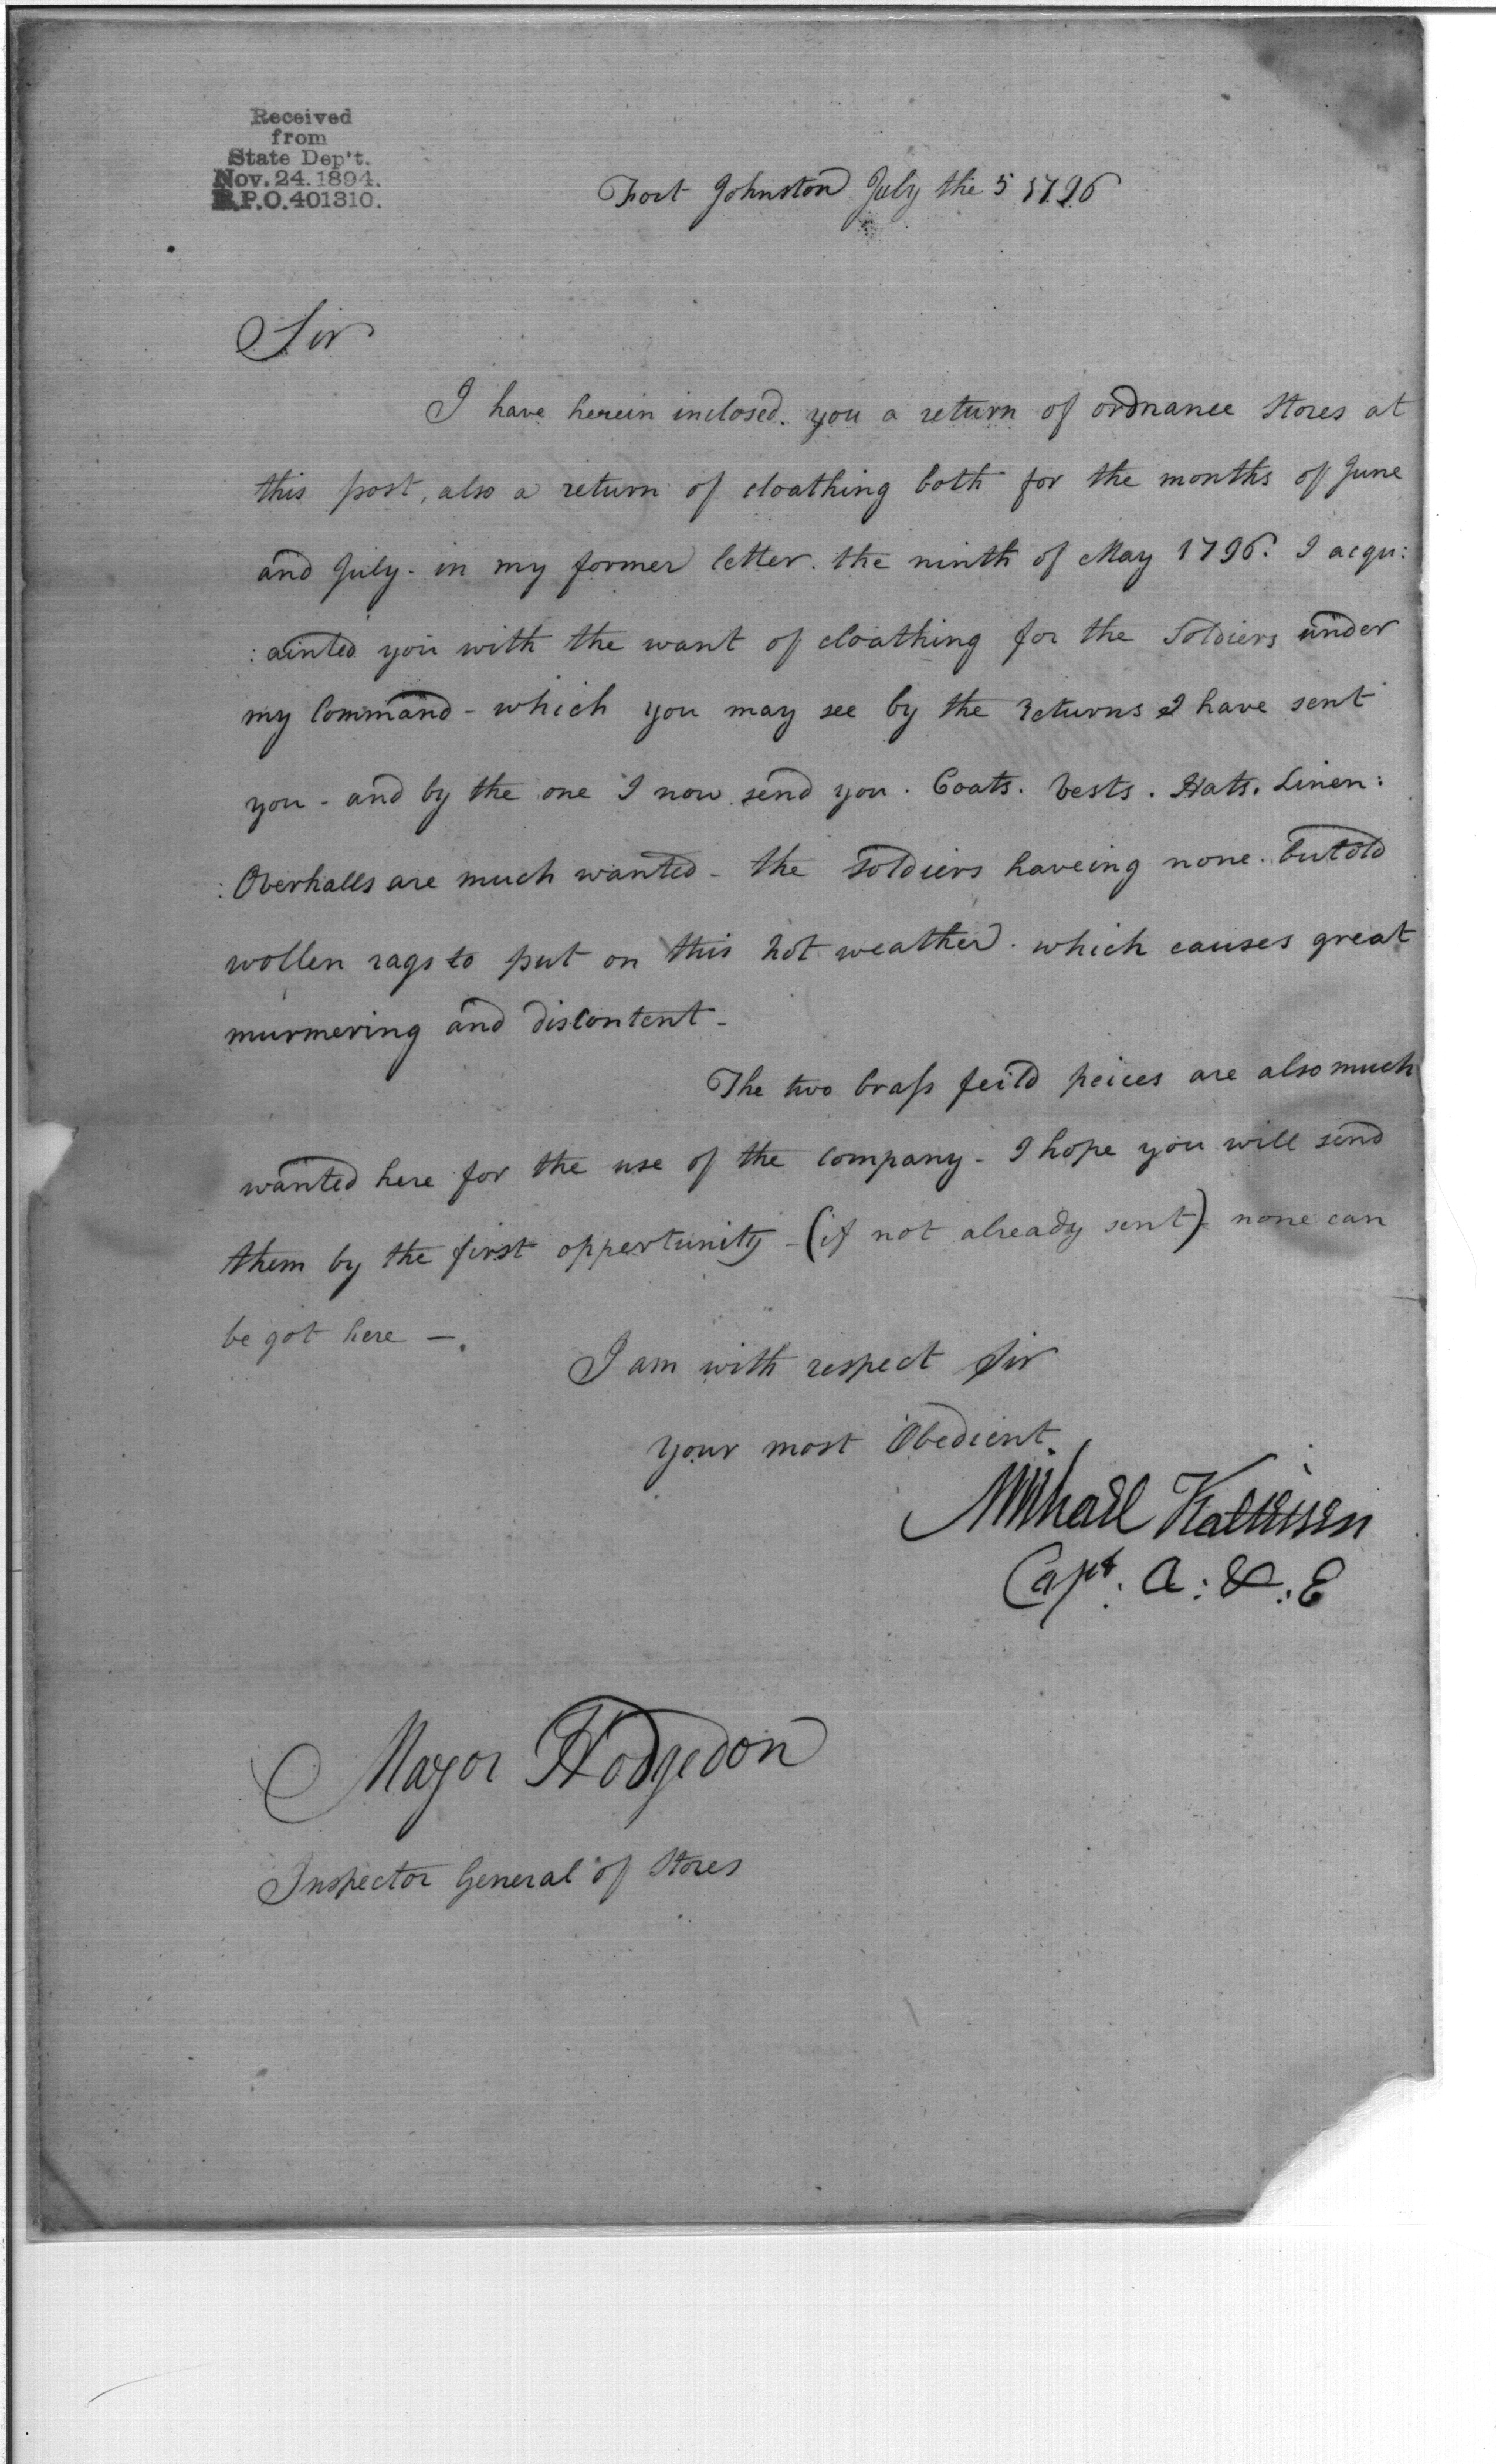 Received
from
State Dep't.
Nov. 24. 1894.
R.P.O. 401310.
Fort Johnston July the 5 1796
Sir
I have herein inclosed. you a return of ordnance Stores at
this post, also a return of cloathing both for the months of June
and July. in my former letter. the ninth of May 1796. I acqu:
:ainted you with the want of cloathing for the Soldiers under
my Command - which you may see by the returns I have sent
you - and by the one I now send you. Coats. Vests. Hats. Linen:
:Overhalls are much wanted - the soldiers haveing none. but old
wollen rags to put on this hot weather. which causes great
murmering and discontent -
The two brass feild peices are also much
wanted here for the use of the company - I hope you will send
them by the first oppertunity - (if not already sent) - none can
be got here -.
I am with respect Sir
your most Obedient.
Michael Kalteisen
Capt. A: &: E
Mayor Hodgedon
Inspector General of Stores